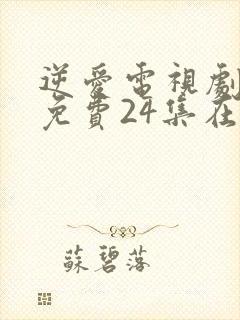 逆愛電視劇
免費24集在
蘇碧落